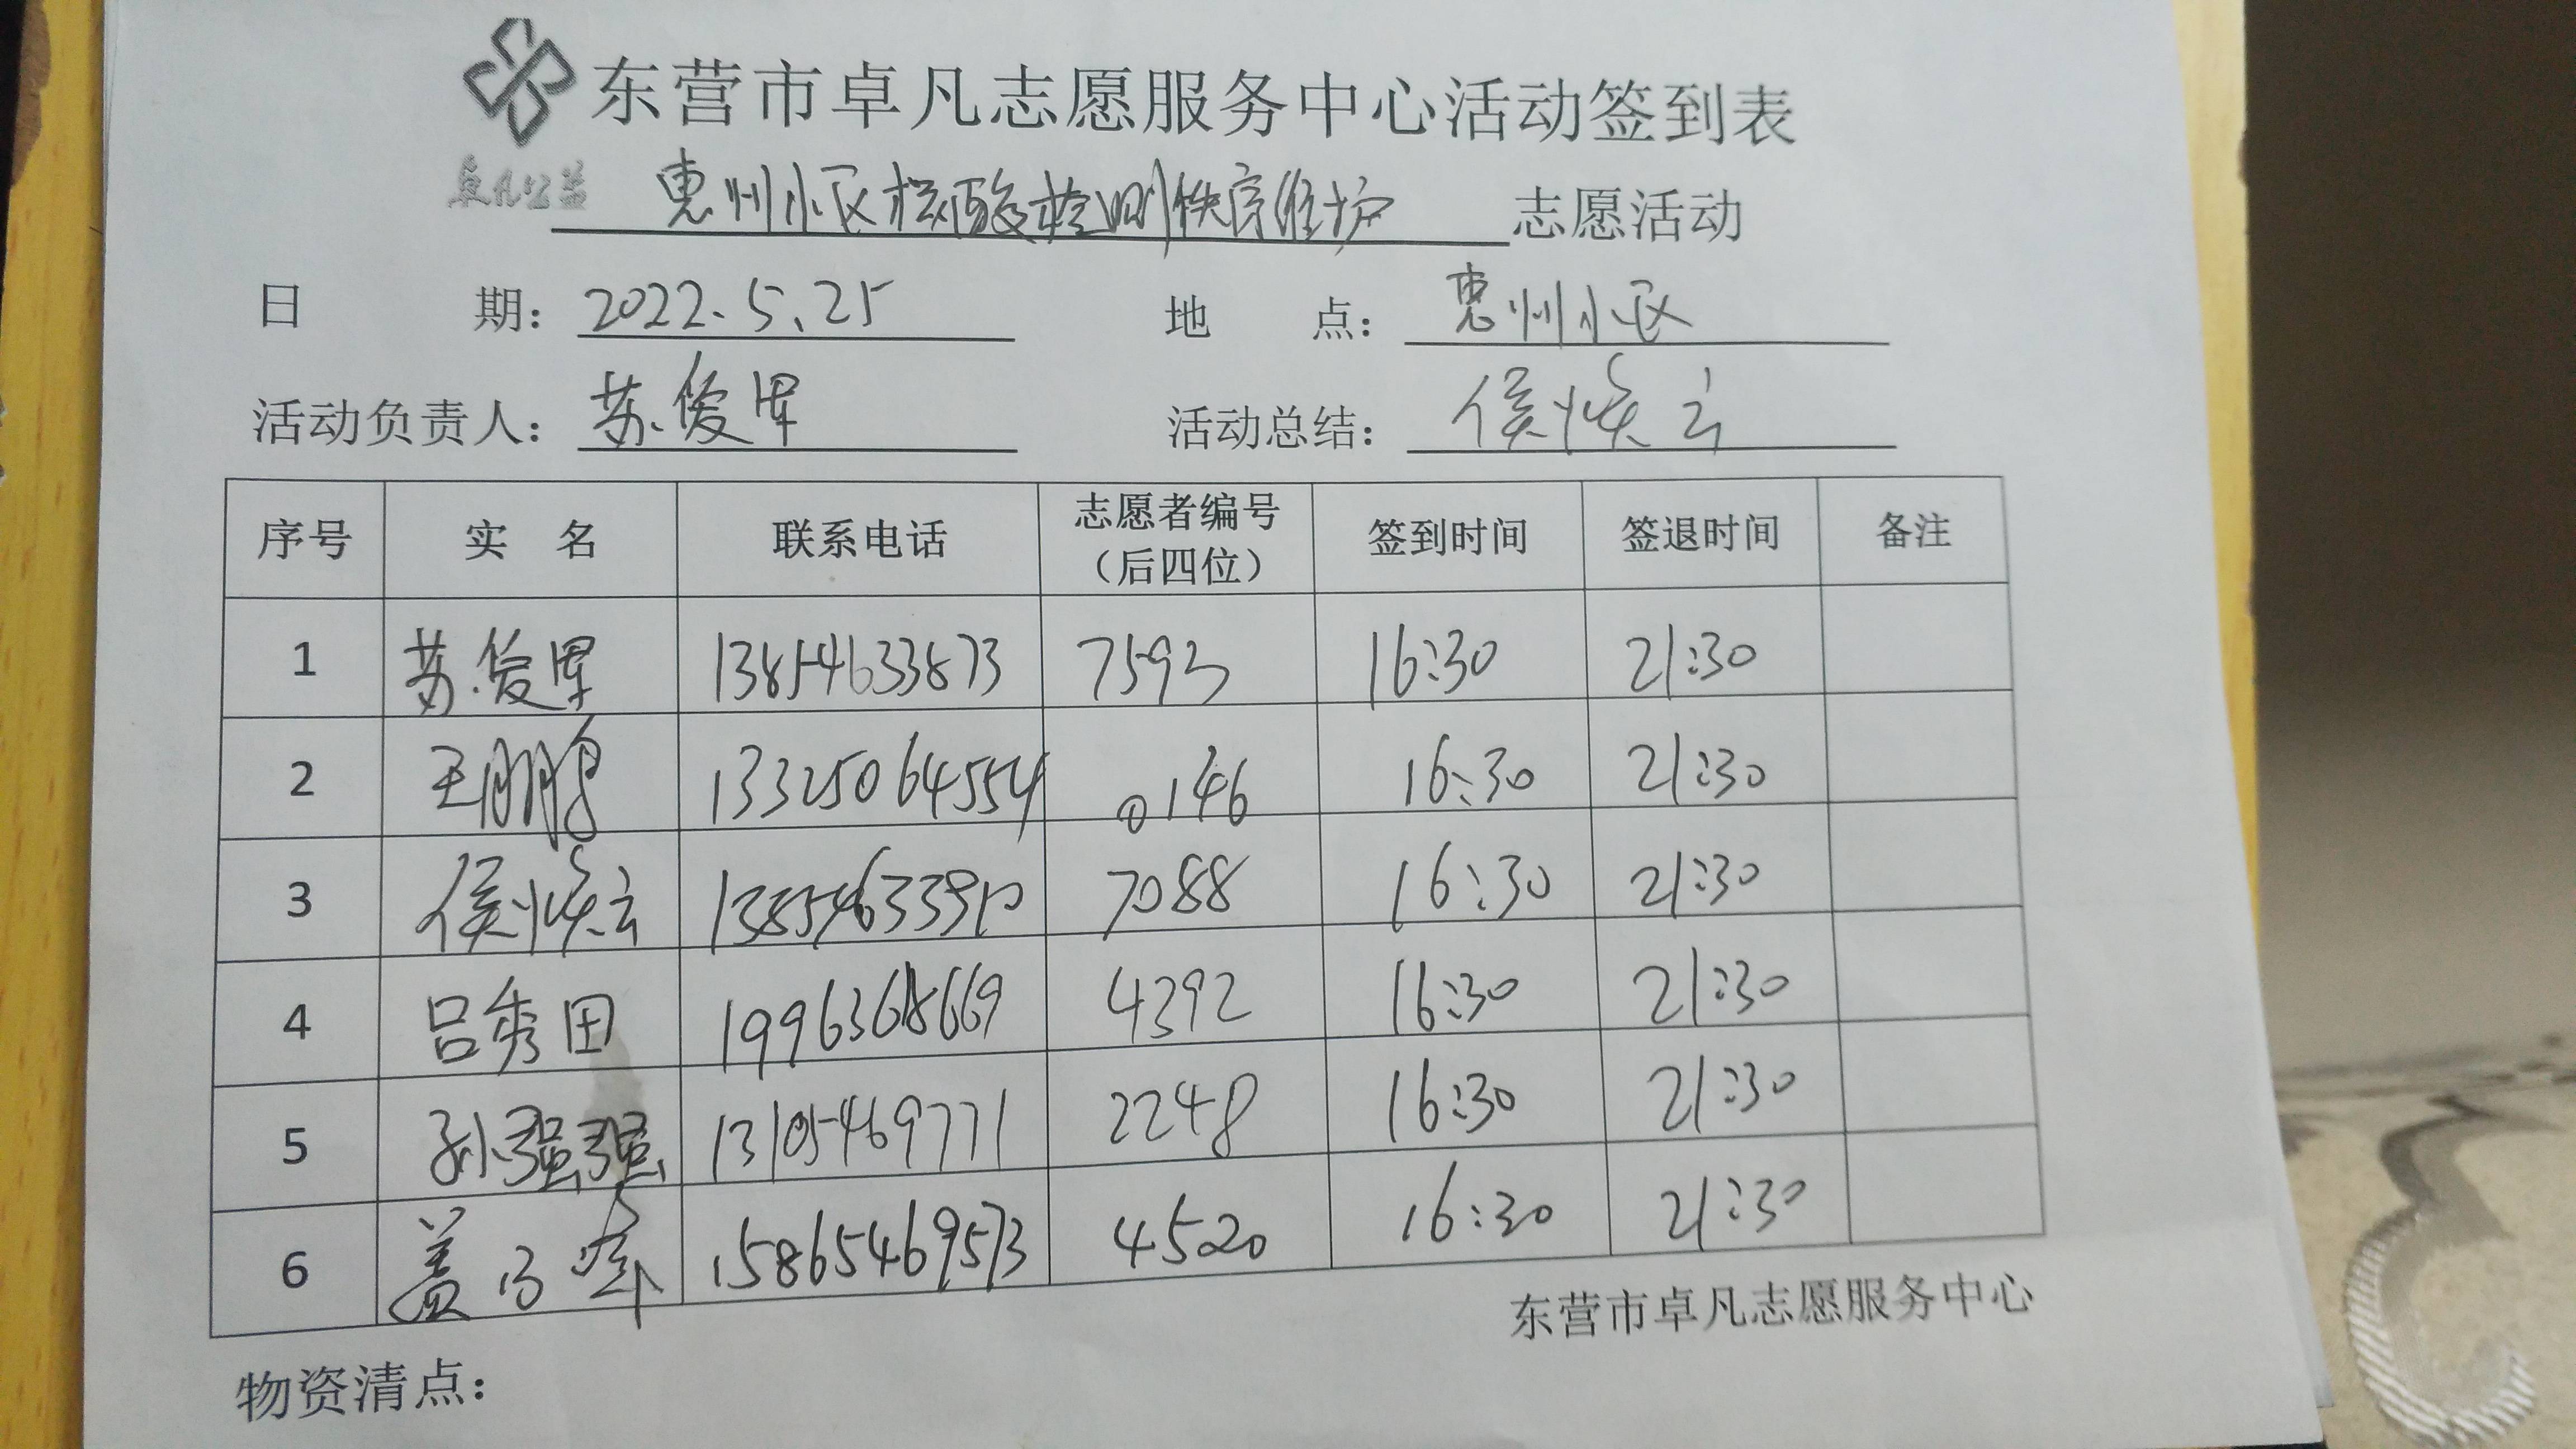 东营市卓凡志愿服务中心活动签到表
卓凡公益
惠州小区核酸检测秩序维护 志愿活动
日 期：2022.5.25 地 点：惠州小区
活动负责人：苏俊军 活动总结：侯焕云
序号 实 名 联系电话 志愿者编号（后四位） 签到时间 签退时间 备注
1 苏俊军 13854633873 7593 16:30 21:30
2 王鹏 13325064554 0146 16:30 21:30
3 侯焕云 13854633910 7088 16:30 21:30
4 吕秀田 19963618669 4392 16:30 21:30
5 孙强强 13105469771 2248 16:30 21:30
6 盖 15865469573 4520 16:30 21:30
东营市卓凡志愿服务中心
物资清点：